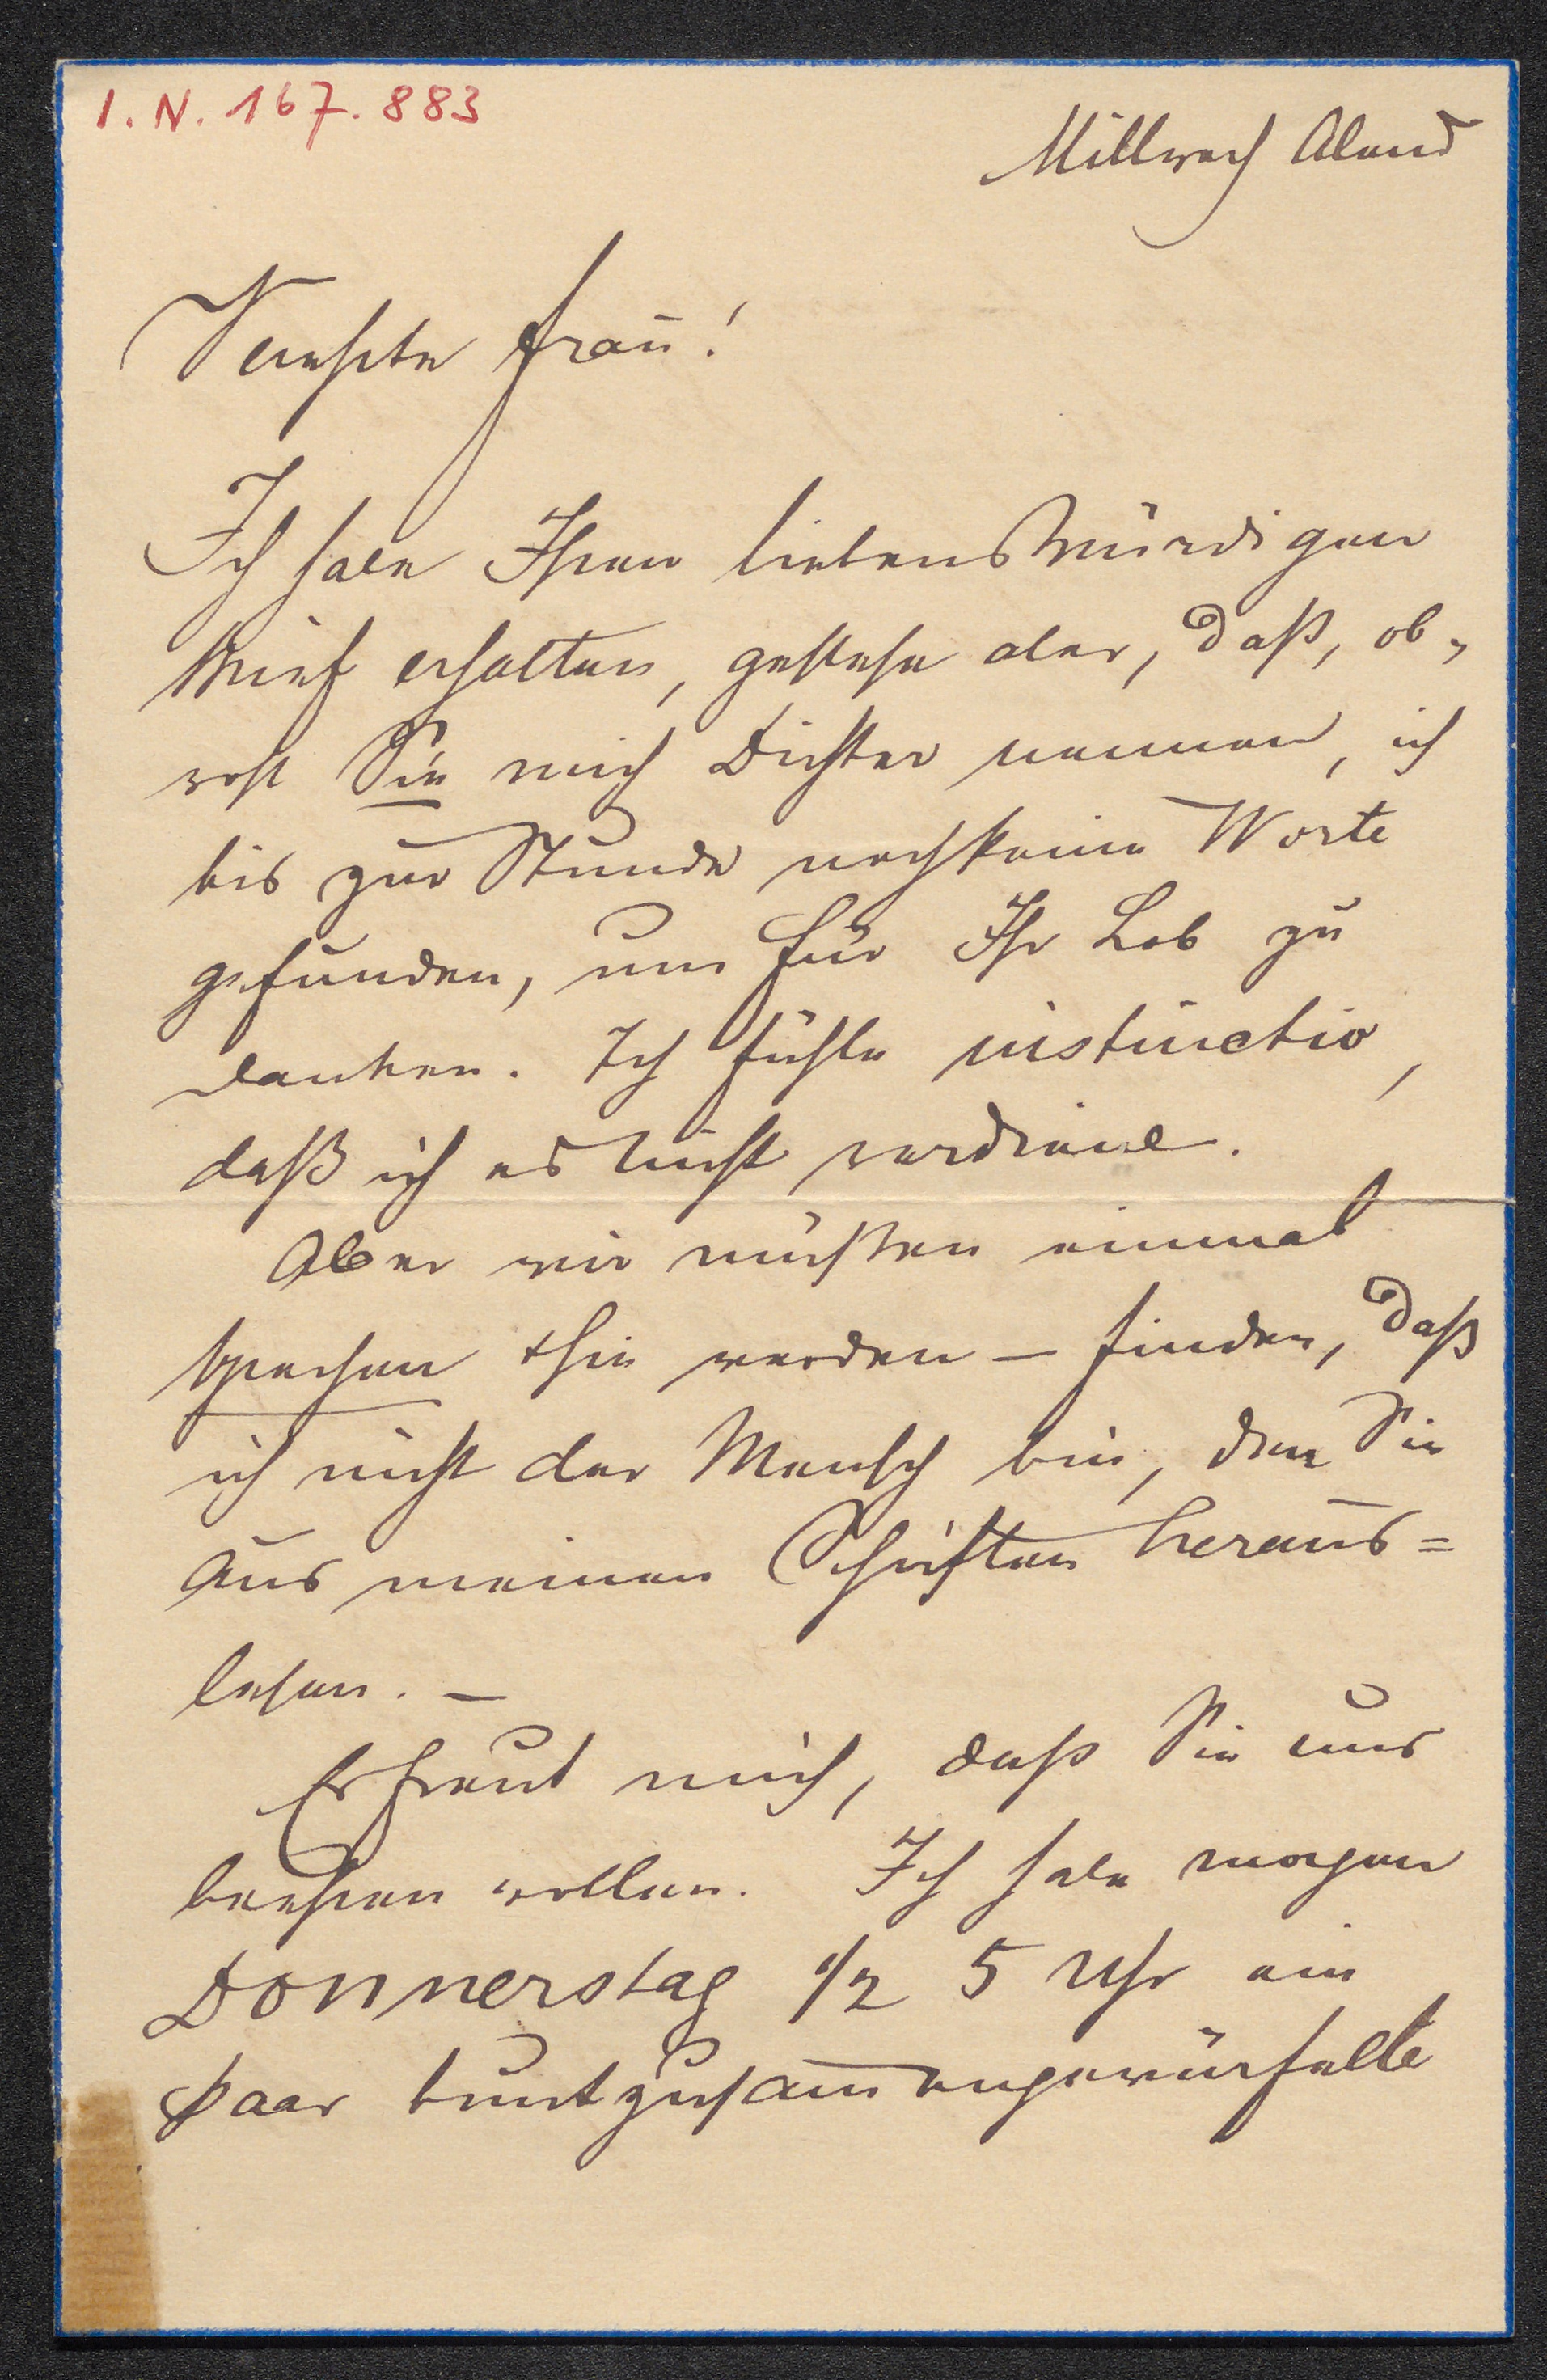 I. N. 167.883
Mittwoch Abend
Verehrte Frau!
Ich habe Ihren liebenswürdigen
Brief erhalten, gestehe aber, daß, ob-
wohl Sie mich Dichter nennen, ich
bis zur Stunde noch keine Worte
gefunden, um für Ihr Lob zu
danken. Ich fühle instinctiv,
daß ich es nicht verdiene.
Aber wir müssen einmal
sprechen & Sie werden – finden, daß
ich nicht der Mensch bin, den Sie
aus meinen Schriften heraus=
lesen. –
Es freut mich, daß Sie uns
beehren wollen. Ich habe morgen
Donnerstag 1/2 5 Uhr ein
paar bunt zusam̄engewürfelte